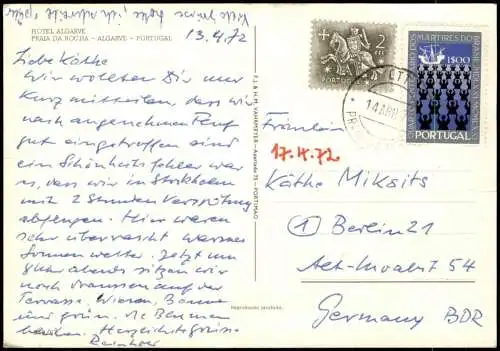 Viele Grüsse
HOTEL ALGARVE
PRAIA DA ROCHA - ALGARVE - PORTUGAL
13.4.72
Liebe Käthe
wir wollten Dir nur
kurz mitteilen, dass wir
nach angenehmen Flug
gut eingetroffen sind
ein Schönheitsfehler war
es, dass wir in Stockholm
mit 2 Stunden Verspätung
abflogen. Hier waren
sehr überrascht warmes
Sonnenwetter. Jetzt um
8 Uhr abends sitzen wir
noch draussen auf der
Terrasse. Wiesen, Bäume
sind grün. Die Blumen
blühen. Herzlichst Grüsse
Reinhold
F. J. & H. M. VAHRMEYER - PORTIMÃO
Reprodução proibida
2
PORTUGAL
MARTIRES DO BRASIL
1$00
PORTUGAL
14 ABR
Fräulein
17.4.72
Käthe Miksits
1 Berlin 21
Alt-Moabit 54
Germany BDR